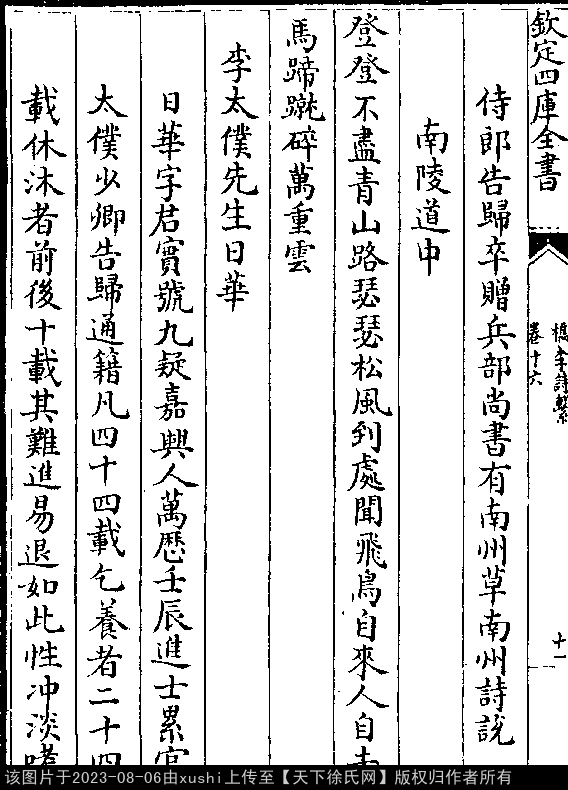 欽定四庫全書
檇李詩繫
卷十六
十一
侍郎告歸卒贈兵部尚書有南州草南州詩説
南陵道中
登登不盡青山路瑟瑟松風到處聞飛鳥自來人自去
馬蹄蹴碎萬重雲
李太僕先生日華
日華字君實號九疑嘉興人萬歷壬辰進士累官
太僕少卿告歸通籍凡四十四載乞養者二十四
載休沐者前後十載其難進易退如此性冲淡
该图片于2023-08-06由xushi上传至【天下徐氏网】版权归作者所有